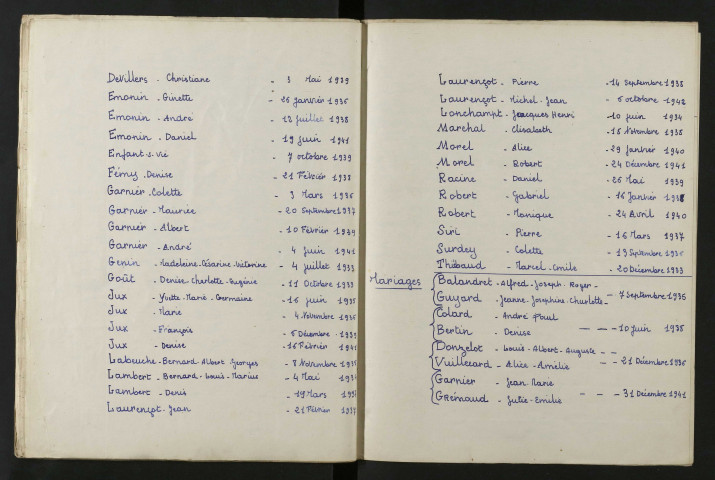 Devillers - Christiane - 3 Mai 1939
Emonin - Ginette - 26 janvier 1936
Emonin - André - 12 juillet 1938
Emonin - Daniel - 19 juin 1941
Enfant s. vie - 7 octobre 1939
Fémy - Denise - 21 Février 1938
Garnier - Colette - 3 Mars 1936
Garnier - Maurice - 20 Septembre 1937
Garnier - Albert - 10 Février 1939
Garnier - André - 4 juin 1941
Genin - Madeleine-Césarine-Victorine - 4 juillet 1933
Goût - Denise-Charlotte-Eugénie - 11 Octobre 1933
Jux - Yvette-Marie-Germaine - 16 juin 1935
Jux - Marie - 4 Novembre 1936
Jux - François - 6 Décembre 1939
Jux - Denise - 16 Février 1941
Labeuche - Bernard-Albert Georges - 8 Novembre
Lambert - Bernard-Louis-Marius - 4 Mai
Lambert - Denis - 19 Mars
Laurençot - Jean - 21 Février 1937
Laurençot - Pierre - 14 Septembre 1938
Laurençot - Michel-Jean - 6 octobre 1942
Lonchampt - Jacques Henri - 10 juin 1934
Marchal - Elisabeth - 18 Novembre 1938
Morel - Alice - 29 janvier 1940
Morel - Robert - 24 Décembre 1941
Racine - Daniel - 26 Mai 1939
Robert - Gabriel - 16 janvier
Robert - Monique - 24 Avril 1940
Siri - Pierre - 16 Mars 1937
Surdey - Colette - 13 Septembre 1936
Thibaud - Marcel-Emile - 20 Décembre 1933
Mariages
Balandret - Alfred-Joseph-Roger -
Guyard - Jeanne-Joséphine-Charlotte - 7 Septembre 1935
Colard - André Paul
Bertin - Denise - 10 juin 1938
Donzelot - Louis-Albert-Auguste -
Vuillemard - Alice-Amélie - 21 Décembre 1936
Garnier - Jean Marie
Grémaud - Julie-Emilie - 31 Décembre 1941